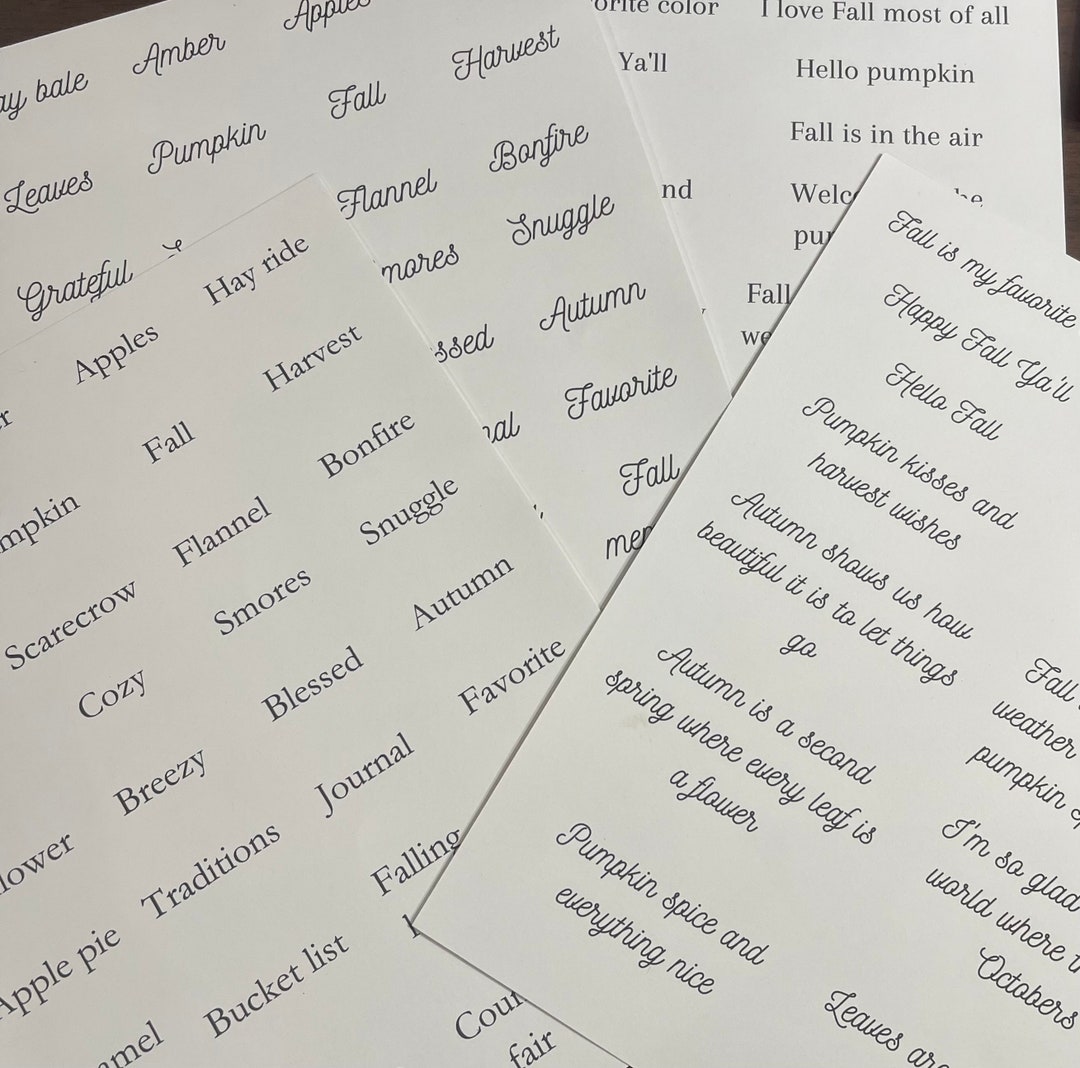 Apples
Amber
ay bale
Harvest
Fall
Pumpkin
Leaves
Bonfire
Flannel
Grateful
Snuggle
mores
Autumn
ssed
Favorite
nal
Fall
mer
orite color
I love Fall most of all
Ya'll
Hello pumpkin
Fall is in the air
nd
Welc
pu
Fall
we
Hay ride
Apples
Harvest
Fall
mpkin
Bonfire
Flannel
Scarecrow
Snuggle
Smores
Cozy
Autumn
Blessed
Breezy
Favorite
Journal
Traditions
lower
Falling
Apple pie
Bucket list
amel
Coun
fair
Fall is my favorite
Happy Fall Ya'll
Hello Fall
Pumpkin kisses and
harvest wishes
Autumn shows us how
beautiful it is to let things
go
Autumn is a second
spring where every leaf is
a flower
Pumpkin spice and
everything nice
Fall
weather
pumpkin
I'm so glad
world where
Octobers
Leaves are